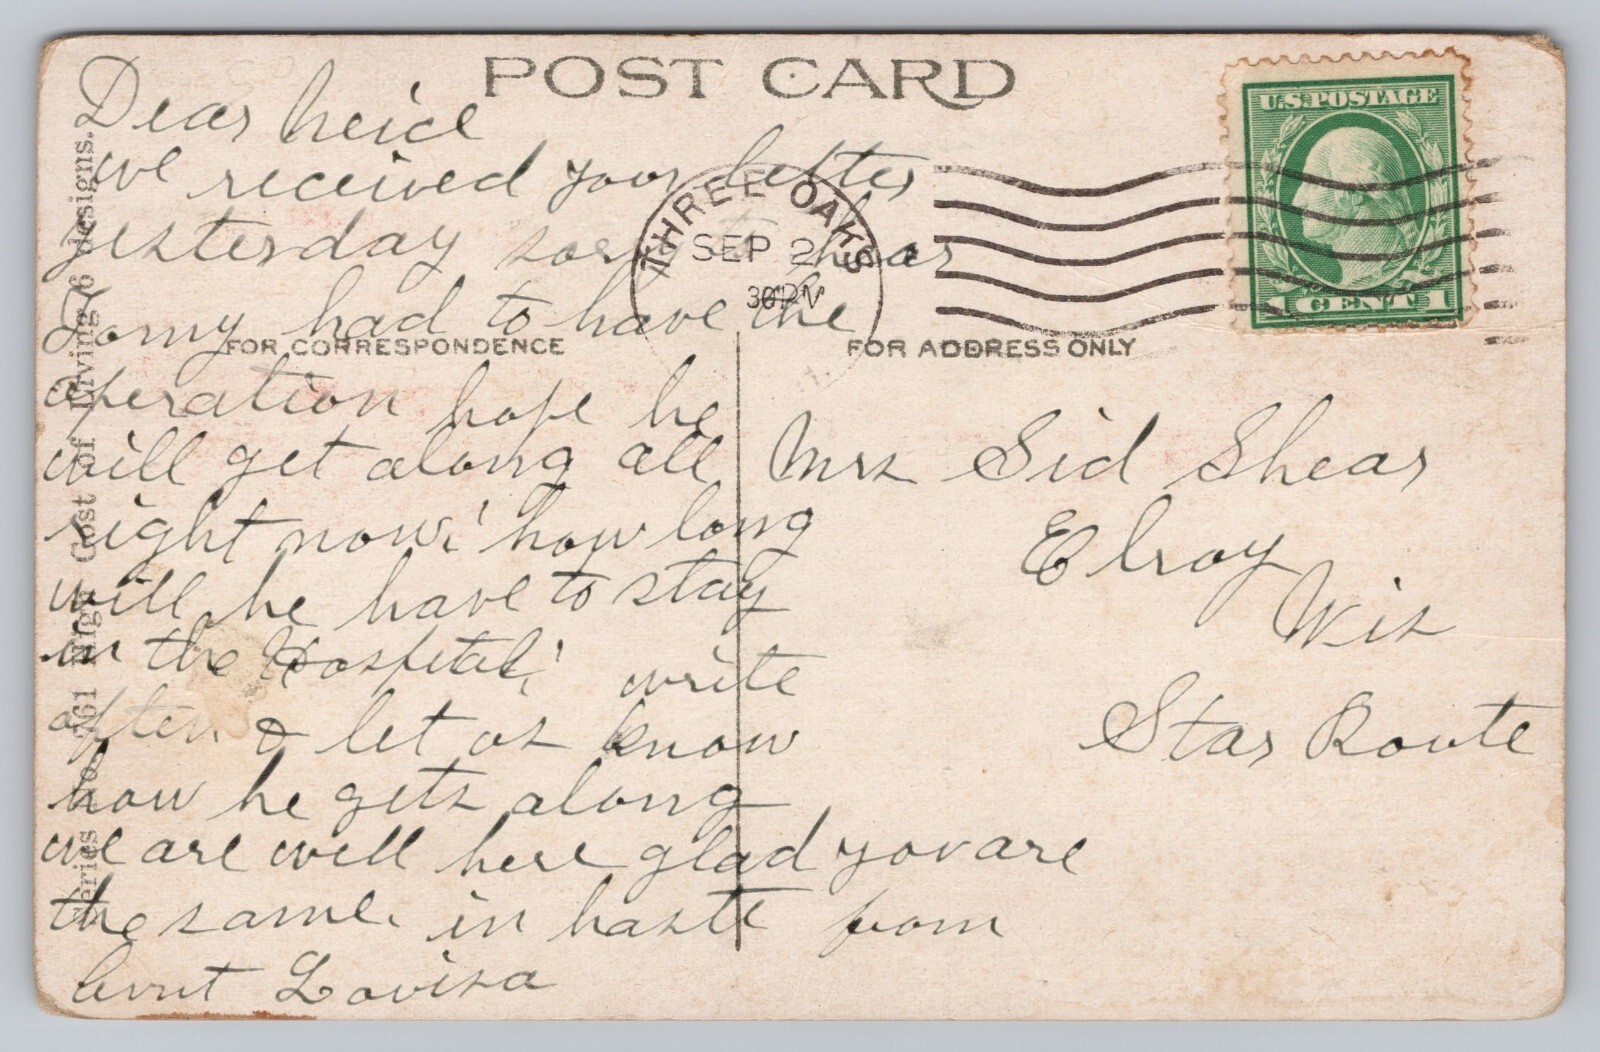 POST CARD
U.S. POSTAGE
1 CENT 1
THREE OAKS
SEP 2
30 PM
FOR CORRESPONDENCE
FOR ADDRESS ONLY
Series No. 761 High Cost of Living 6 designs.
Dear neice
we received your letter
yesterday sory to hear
Tomy had to have the
operation hope he
will get along all
right now. how long
will he have to stay
in the Hospital. write
often & let us know
how he gets along
we are well here glad you are
the same. in haste from
Aunt Lovisa
Mrs Sid Shear
Elroy
Wis
Star Route